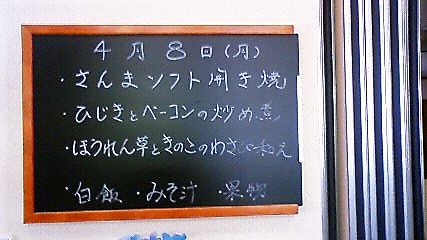 4月8日(月)
・さんまソフト開き焼
・ひじきとベーコンの炒め煮
・ほうれん草ときのこのわさび和え
・白飯 ・みそ汁 ・果物